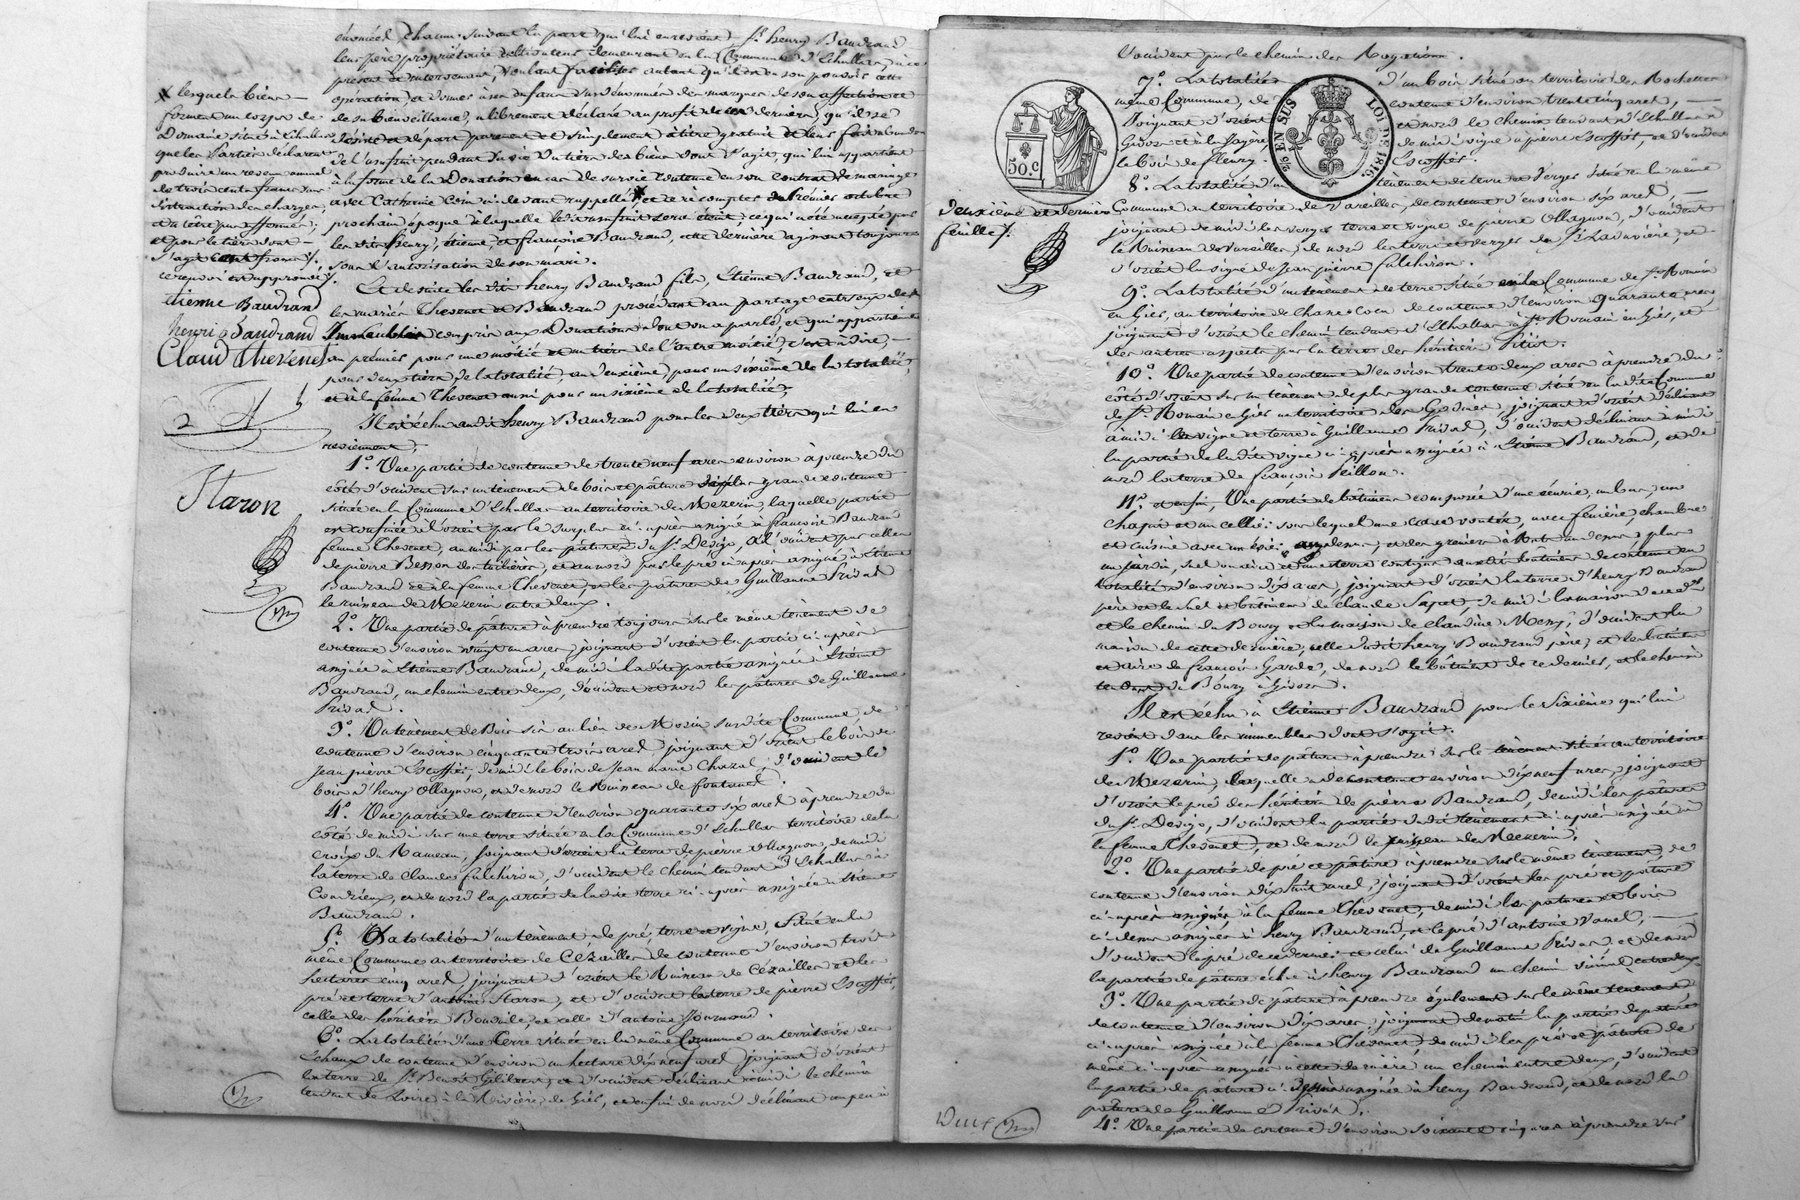 énoncés chacun suivant la part qui lui en revient, Sr. henry Baudrand
leur père propriétaire cultivateur demeurant en la Commune d'Echallas, ici
présent et intervenant, voulant faciliter autant qu'il est en son pouvoir cette
opération, et donner à ses enfans susnommés des marques de son affection et
de sa bienveillance, a librement déclaré au profit de ces derniers, qu'il se
désiste et départ purement et simplement à titre gratuit et leur fait abandon
de l'usufruit pendant sa vie du tiers des biens dont s'agit, qui lui appartient
à la forme de la Donation en cas de survie contenue en son contrat de mariage
avec Catherine ci devant rappellé, et ce à compter du premier octobre
prochain époque à laquelle le dit usufruit sera éteint, ce qui a été accepté par
les dits henry, étienne et françoise Baudrand, cette dernière agissant toujours
sous l'autorisation de son mari.
Et de suite les dits henry Baudrand fils, Etienne Baudrand, et
les mariés Thevenet et Baudrand procédant au partage entr'eux des
immeubles compris aux Donations dont on a parlé, et qui appartiennent
au premier pour une moitié et un tiers de l'autre moitié, c'est à dire,
pour deux tiers de la totalité, au deuxième pour un sixième de la totalité,
et à la femme Thevenet aussi pour un sixième de la totalité,
Il est échu audit henry Baudrand pour les deux tiers qui lui en
reviennent,
1.° Une partie de contenue de trente neuf ares environ à prendre du
côté d'occident sur un tènement de bois et pâture de plus grande contenue
située en la Commune d'Echallas au territoire du Mezerin, laquelle partie
est confinée à l'orient par le surplus ci-après assigné à françoise Baudrand
femme Thevenet, au midi par les pâtures du Sr. Desigo, à l'occident par celles
de pierre Besson des tuilières, et au nord par le pré ci-après assigné à Etienne
Baudrand et à la femme Thevenet, et les pâtures de Guillaume Privat
le ruisseau de Mezerin entre deux.
2.° Une partie de pâture à prendre toujours sur le même tènement de
contenue d'environ vingt un ares, joignant d'orient la partie ci-après
assignée à Etienne Baudrand, de midi la dite partie assignée à Etienne
Baudrand, un chemin entre deux, d'occident et nord les pâtures de Guillaume
Privat.
3.° Un tènement de Bois sis au lieu de Mosin susdite Commune, de
contenue d'environ cinquante trois ares, joignant d'orient le bois de
Jean pierre Escoffier, de midi le bois de Jean marie Chazal, d'occident le
bois d'henry Ollagnon, et de nord le Ruisseau de fontanel.
4.° Une partie de contenue d'environ quarante six ares à prendre du
côté de midi sur une terre située en la Commune d'Echallas territoire de la
croix du Rameau, joignant d'orient la terre de pierre Ollagnon, de midi
la terre de Claude fulchiron, d'occident le chemin tendant d'Echallas à
Condrieux, et de nord la partie de la dite terre ci-après assignée à Etienne
Baudrand.
5.° La totalité d'un tènement de pré, terre et vigne, situé en la
même Commune au territoire de Cézailles, de contenue d'environ trois
hectares cinq ares, joignant d'orient le Ruisseau de Cézailles et les
pré et terre d'antoine Staron, et d'occident la terre de pierre Escoffier,
celle des héritiers Bonville, et celle d'antoine Journoud.
6.° La totalité d'une Terre située en la même Commune au territoire des
Echaux de contenue d'environ un hectare dix neuf ares, joignant d'orient
la terre de Sr. Benoit Gilibert, et d'occident déclinant à midi le chemin
tendant de Loire à la Rivière de Giés, et enfin de nord déclinant un peu à
x lesquels biens
forment un corps de
Domaine situé à Echallas
que les Parties déclarent
produire un revenu annuel
de trois cents francs sans
distraction des charges,
et n'être pas affermés;
et pour le tiers dont
s'agit cent francs /.
renvoi est approuvé /.
etienne Baudrand
henri Baudrand
Claud thevenet
Staron
Deuxième et dernière
feuille /.
50.C
2.s EN SUS
LOI DE 1816.
l'occident par le chemin des Rogations.
7.° La totalité d'un bois situé au territoire des Rochettes
même Commune, de contenue d'environ trente cinq ares,
joignant d'orient et nord le chemin tendant d'Echallas à
Givors et à la Layère, de midi vigne à pierre Escoffier, et d'occident
le bois de fleury Escoffier.
8.° La totalité d'un tènement de terre et verger situé en la même
Commune au territoire de Vareilles, de contenue d'environ six ares,
joignant de midi les verger terre et vigne de pierre Ollagnon, d'occident
le Ruisseau de Vareilles, de nord les terre et verger du Sr. Lauvière, et
d'orient la vigne de Jean pierre fulchiron.
9.° La totalité d'un tènement de terre situé en la Commune de St. Romain
en Giés, au territoire de Chanescoen de contenue d'environ quarante ares,
joignant d'orient le chemin tendant d'Echallas à St. Romain en Giés, et
des autres aspects par la terre des héritiers Petit.
10.° Une partie de contenue d'environ trente deux ares à prendre du
côté d'orient sur un tènement de plus grande contenue situé en la dite Commune
de St. Romain en Giés au territoire des Godières, joignant d'orient déclinant
à midi les vigne et terre à Guillaume Privat, d'occident déclinant à midi
la partie de la dite vigne ci-après assignée à Etienne Baudrand, et de
nord la terre de françois Peillon.
11.° et enfin, Une partie de bâtimens composée d'une écurie, un
chapit et un cellier sous lequel une cave voutée, avec fenière, chambre
et cuisine avec un évier au dessus, et des greniers à
un jardin, suel ou aire et une terre contigus audit bâtiment de contenue en
totalité d'environ dix ares, joignant d'orient la terre d'henry Baudrand
père et le suel et bâtiment de claude Sapet, de midi la maison de
et le chemin du Bourg et la maison de claudine Meny, d'occident la
maison de cette dernière, celle dudit henry Baudrand père, et les bâtiment
et aire de françois Garde, de nord le bâtiment de ce dernier, et le chemin
tendant du Bourg à Givors.
Il est échu à Etienne Baudrand pour le sixième qui lui
revient dans les immeubles dont s'agit.
1.° Une partie de pâture à prendre sur le tènement situé au territoire
de Mezerin, laquelle a de contenue environ dix neuf ares, joignant
d'orient le pré des héritiers de pierre Baudrand, de midi les pâtures
du Sr. Desigo, d'occident la partie dudit tènement ci-après assignée à
la femme Thevenet, et de nord le ruisseau de Mezerin.
2.° Une partie de pré et pâture à prendre sur le même tènement, de
contenue d'environ dix huit ares, joignant d'orient les pré et pâture
ci-après assignés à la femme Thevenet, de midi les pâtures et bois
ci-dessus assignés à henry Baudrand, et le pré d'antoine Vanel,
d'occident le pré de ce dernier et celui de Guillaume Privat, et de nord
la partie de pâture échue à henry Baudrand un chemin vicinal entre deux.
3.° Une partie de pâture à prendre également sur le même tènement
de contenue d'environ dix ares, joignant de matin la partie de pâture
ci-après assignée à la femme Thevenet, de midi les pré et pâture de
même ci-après assignés à cette dernière, un chemin entre deux, d'occident
la partie de pâture ci-dessus assignée à henry Baudrand, et de nord la
pâture de Guillaume Privat.
4.° Une partie de contenue d'environ soixante cinq ares à prendre sur